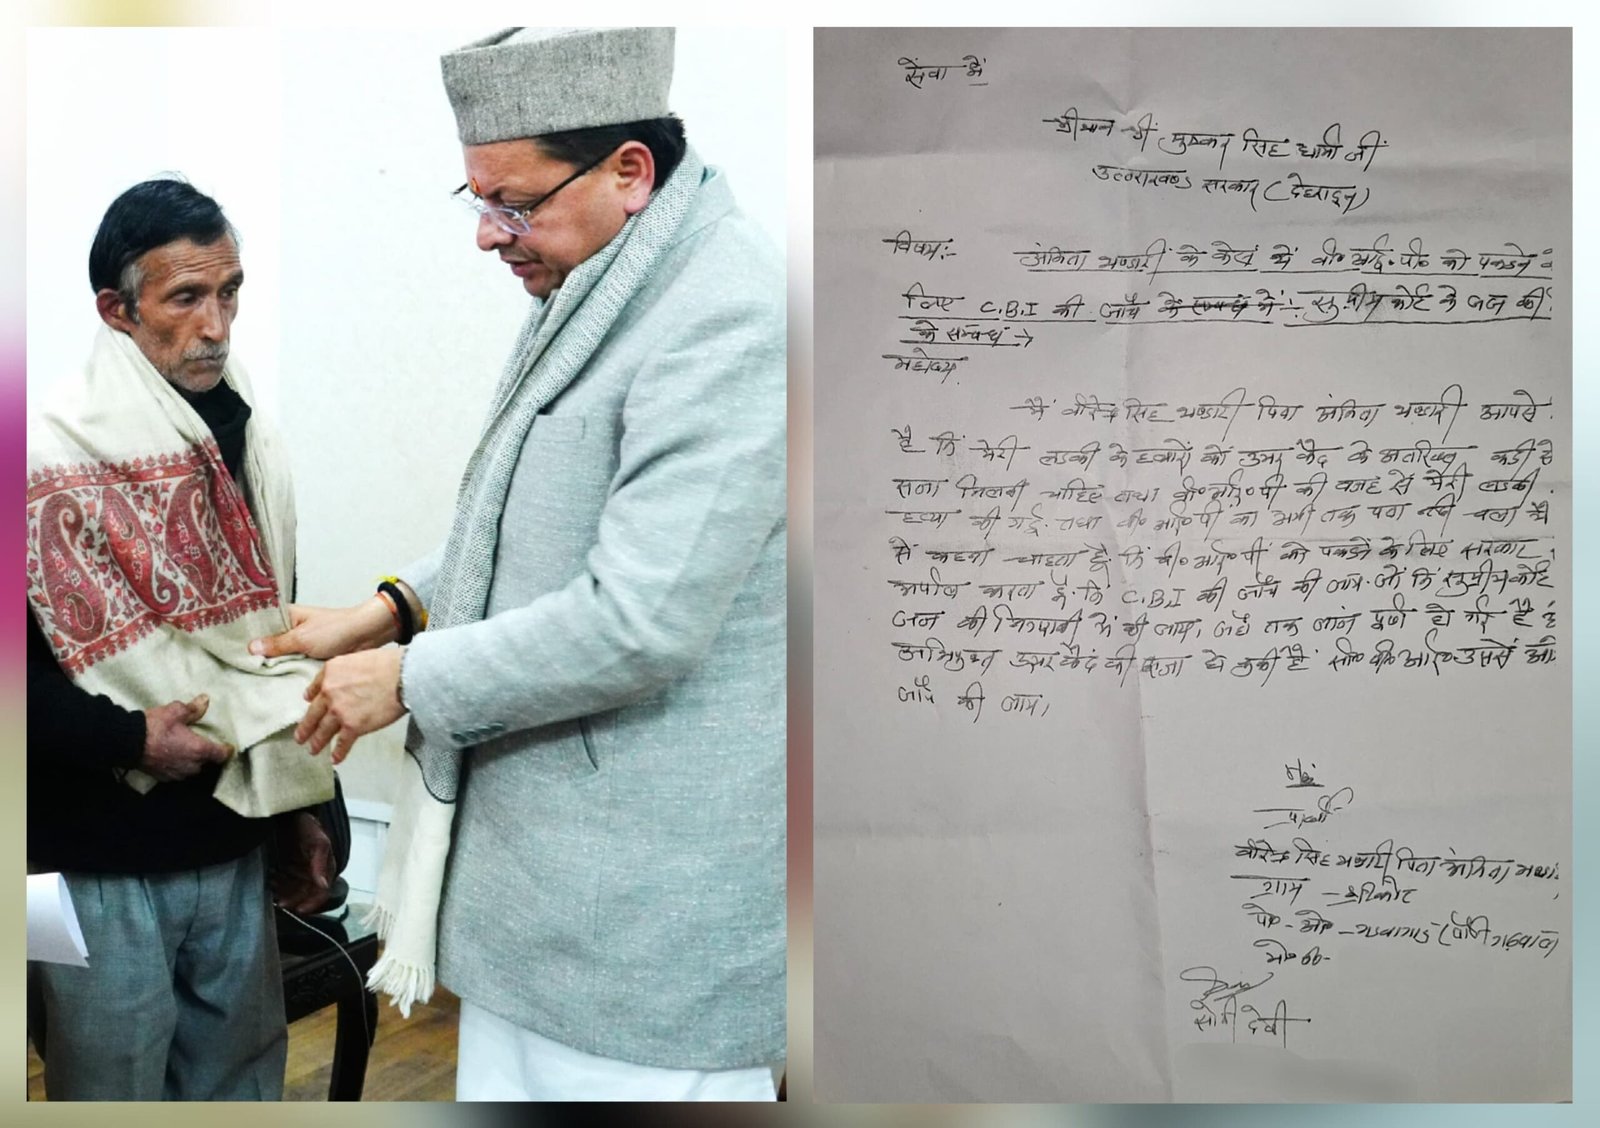 सेवा में
श्रीमान श्री पुष्कर सिंह धामी जी
उत्तराखण्ड सरकार (देहरादून)
विषय:- अंकिता भण्डारी के केस में वी० आई० पी० को पकडने के
लिए C.B.I की जाँच के सम्बन्ध में:- सुप्रीम कोर्ट के जज की
के सम्बन्ध →
महोदय
मैं वीरेन्द्र सिंह भण्डारी पिता अंकिता भण्डारी आपसे
है कि मेरी लडकी के हत्यारों को उमर कैद के अतिरिक्त कडी से
सजा मिलनी चाहिए तथा वी० आई० पी की वजह से मेरी लडकी
हत्या की गई. तथा वी० आई० पी का अभी तक पता नही चला है
से कहना चाहता हूँ कि वी० आई० पी को पकडने के लिए सरकार
अपील करता हूँ. कि C.B.I की जाँच की जाय. जो कि सुप्रीम कोर्ट
जज की निगरानी में की जाय, जहाँ तक जांच पूर्ण हो गई है
अभियुक्त उमर कैद की सजा हो चुकी है सी० वी० आई० उससे आगे
जाँच की जाय,
प्रार्थी
वीरेन्द्र सिंह भण्डारी पिता अंकिता
ग्राम - श्रीकोट
पो० - ओ० - (पौडी गढवाल)
मो० नं०-
सोनी देवी